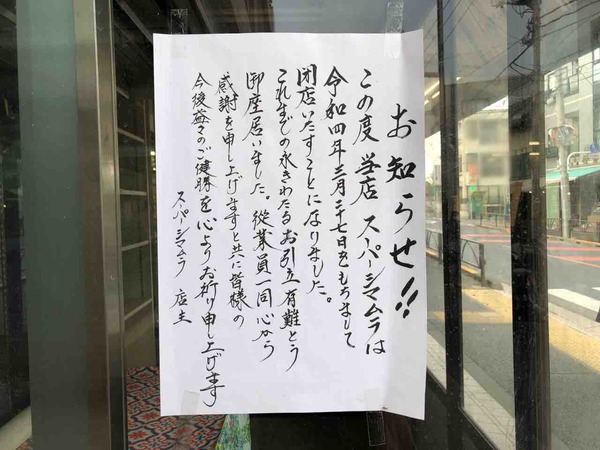 お知らせ!!
この度 当店 スーパーシマムラは
令和四年三月二十七日をもちまして
閉店いたすことになりました。
これまでの永きわたるお引立有難とう
御座居いました。従業員一同心から
感謝を申し上げますと共に皆様の
今後益々のご健勝を心よりお祈り申し上げます
スーパーシマムラ 店主